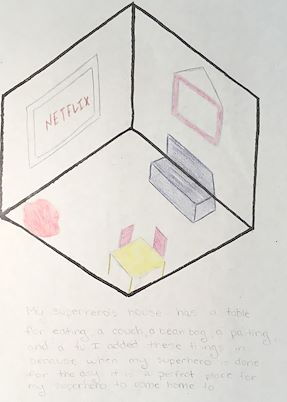 NETFLIX
My superhero's house has a table
for eating, a couch, a bean bag, a painting,
and a tv I added these things in
because when my superhero is done
for the day it is a perfect place for
my superhero to come home to